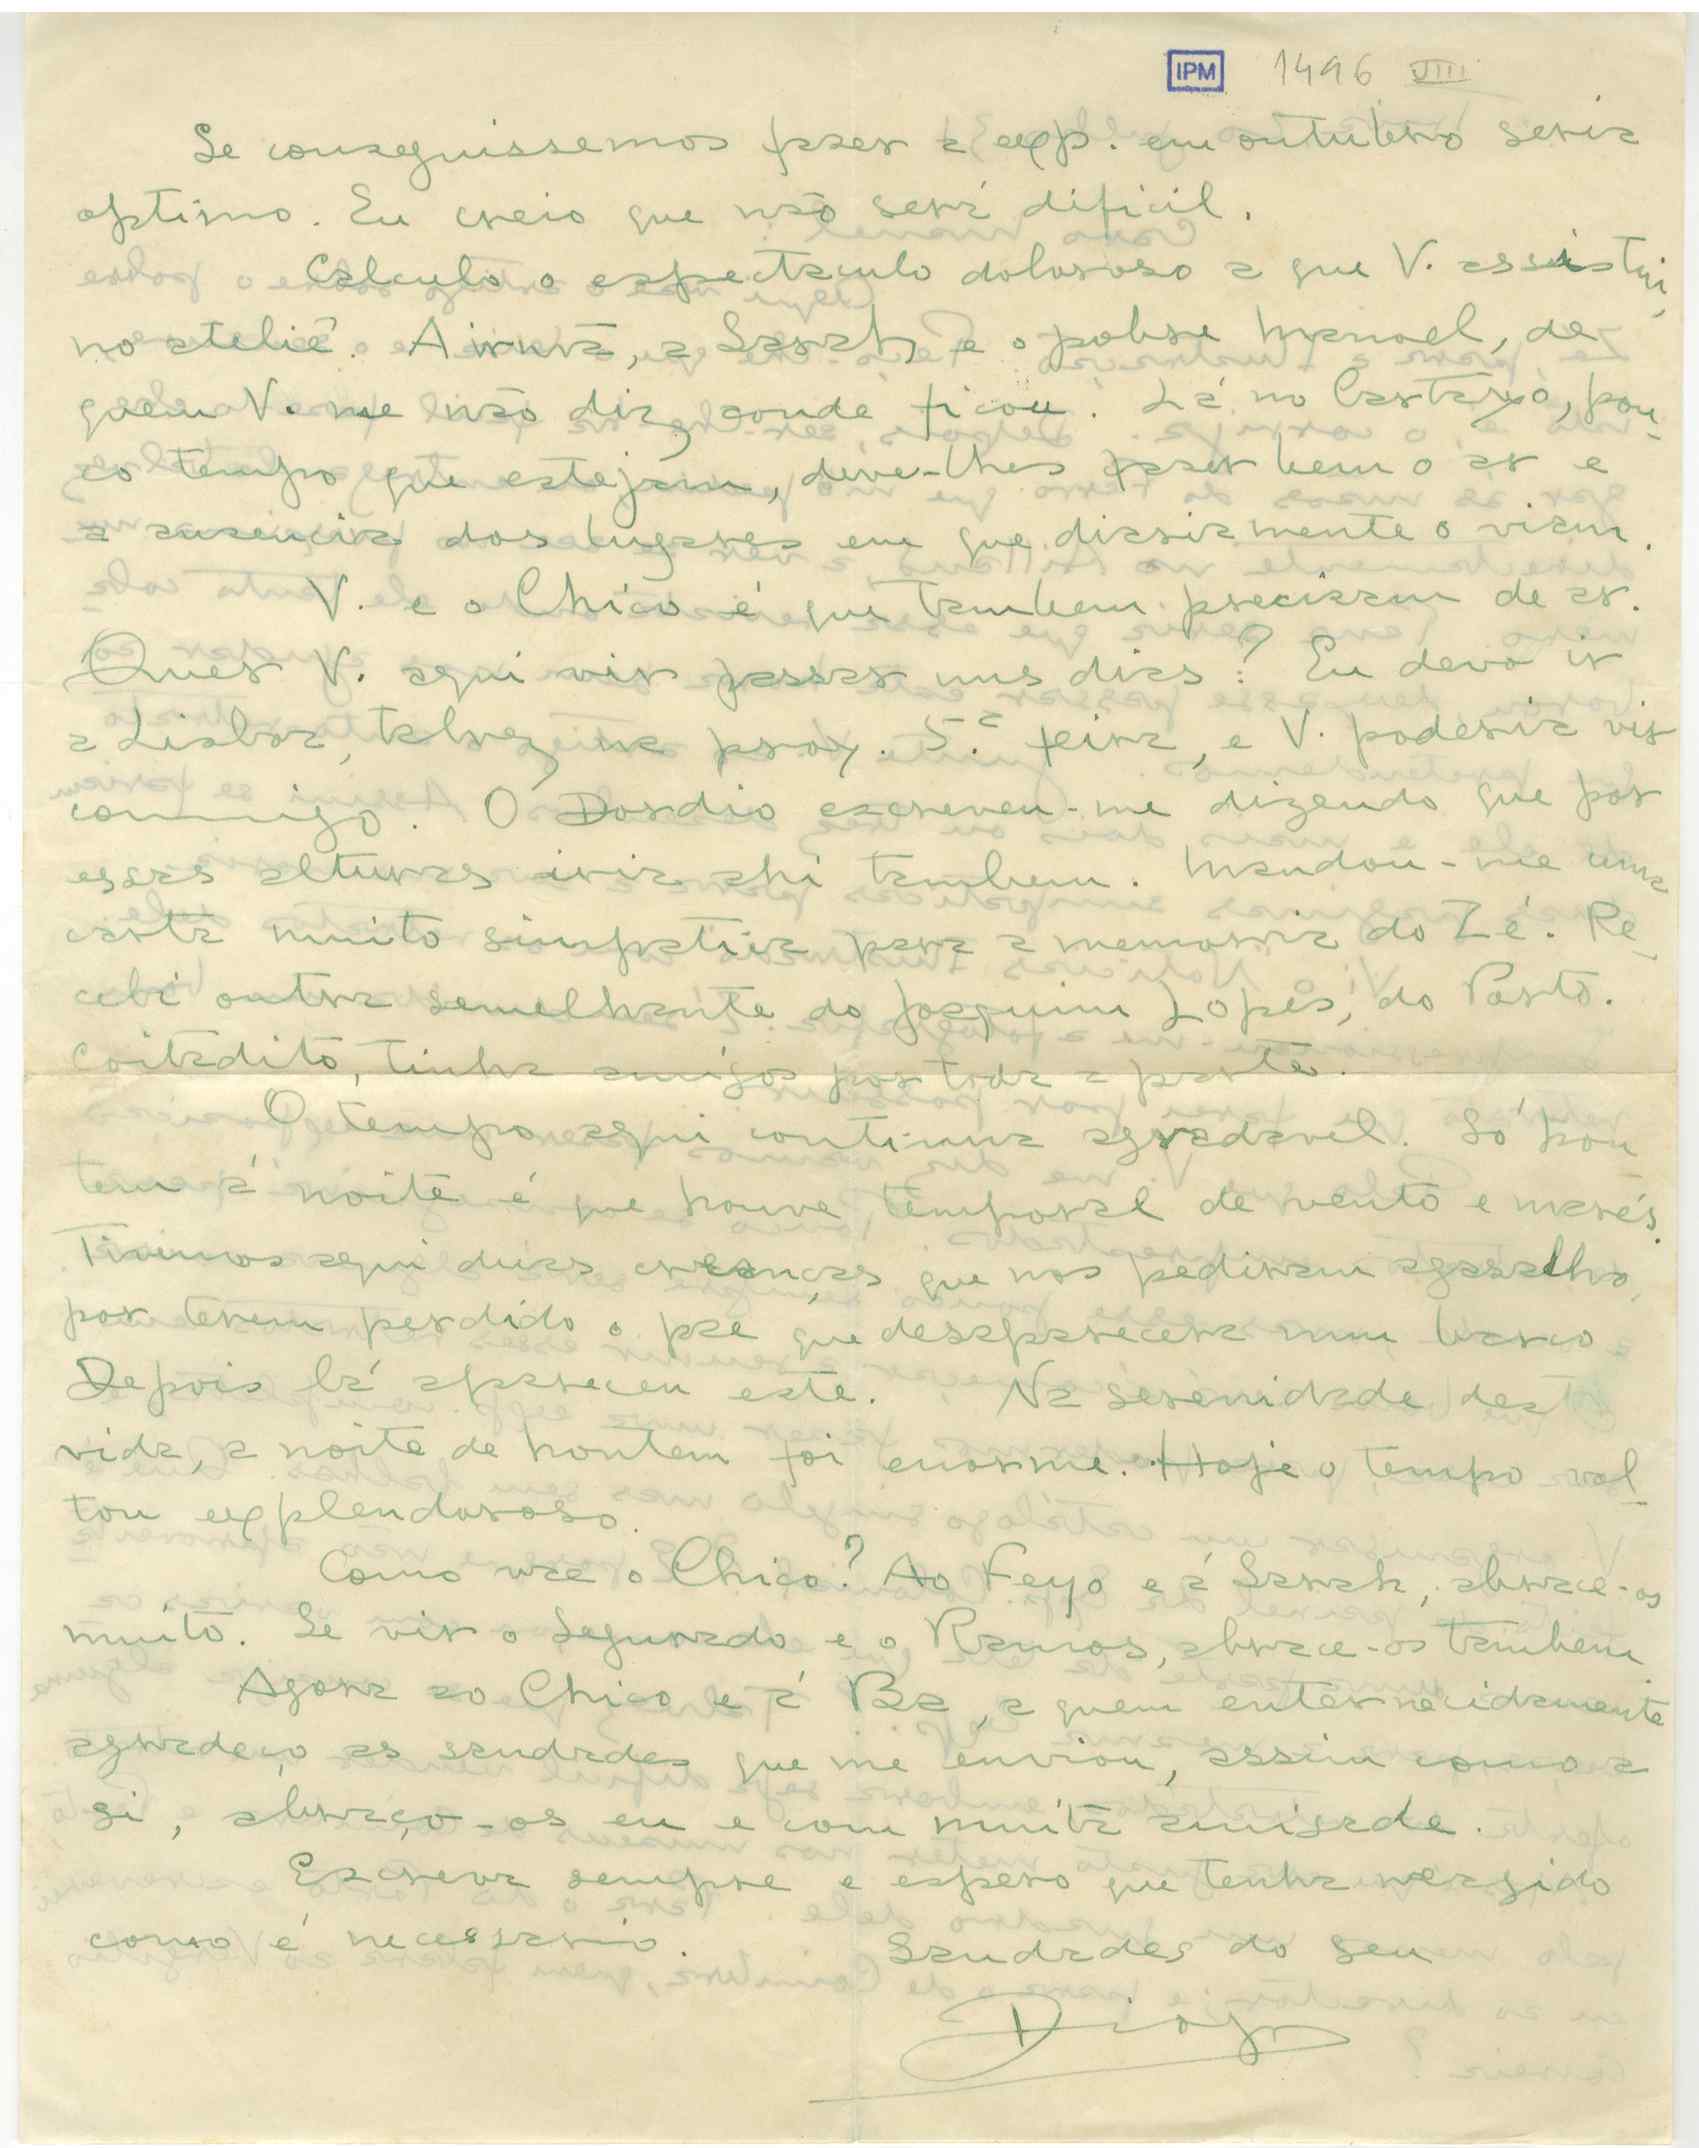 IPM 1496 VIII
Se conseguissemos fazer a exp. em outubro seria
optimo. Eu creio que não será dificil.
Calculo o espectaculo doloroso a que V. assistiu,
no ateliê. A irmã, a Sarah e o pobre Manoel, de
quem V. me não diz aonde ficou. Lá no Cartaxo, pou-
co tempo que estejam, deve-lhes fazer bem o ar e
a ausencia dos lugares em que diariamente o viam.
V. e o Chico é que tambem precisam de ar.
Quer V. aqui vir passar uns dias? Eu devo ir
a Lisboa, talvez na prox. 5.ª feira, e V. poderia vir
commigo. O Dordio escreveu-me dizendo que por
essas alturas iria ahi tambem. Mandou-me uma
carta muito simpatica para a memoria do Zé. Re-
cebi outra semelhante do Joaquim Lopes, do Porto.
Coitadito, tinha amigos por toda a parte.
O tempo aqui continua agradavel. Só hon-
tem á noite é que houve temporal de vento e marés.
Tivemos aqui duas creanças que nos pediram agasalho,
por terem perdido o pae que desaparecera num barco
Depois lá apareceu este. Na serenidade desta
vida, a noite de hontem foi enorme. Hoje o tempo vol-
tou explendoroso.
Como vae o Chico? Ao Feyo e á Sarah, abrace-os
muito. Se vir o Segurado e o Ramos, abrace-os tambem.
Agora ao Chico e á Ba, a quem enternecidamente
agradeço as saudades que me enviou, assim como a
si, abraço-os eu e com muita amisade.
Escreva sempre e espero que tenha reagido
como é necessario. Saudades do seu
Diogo